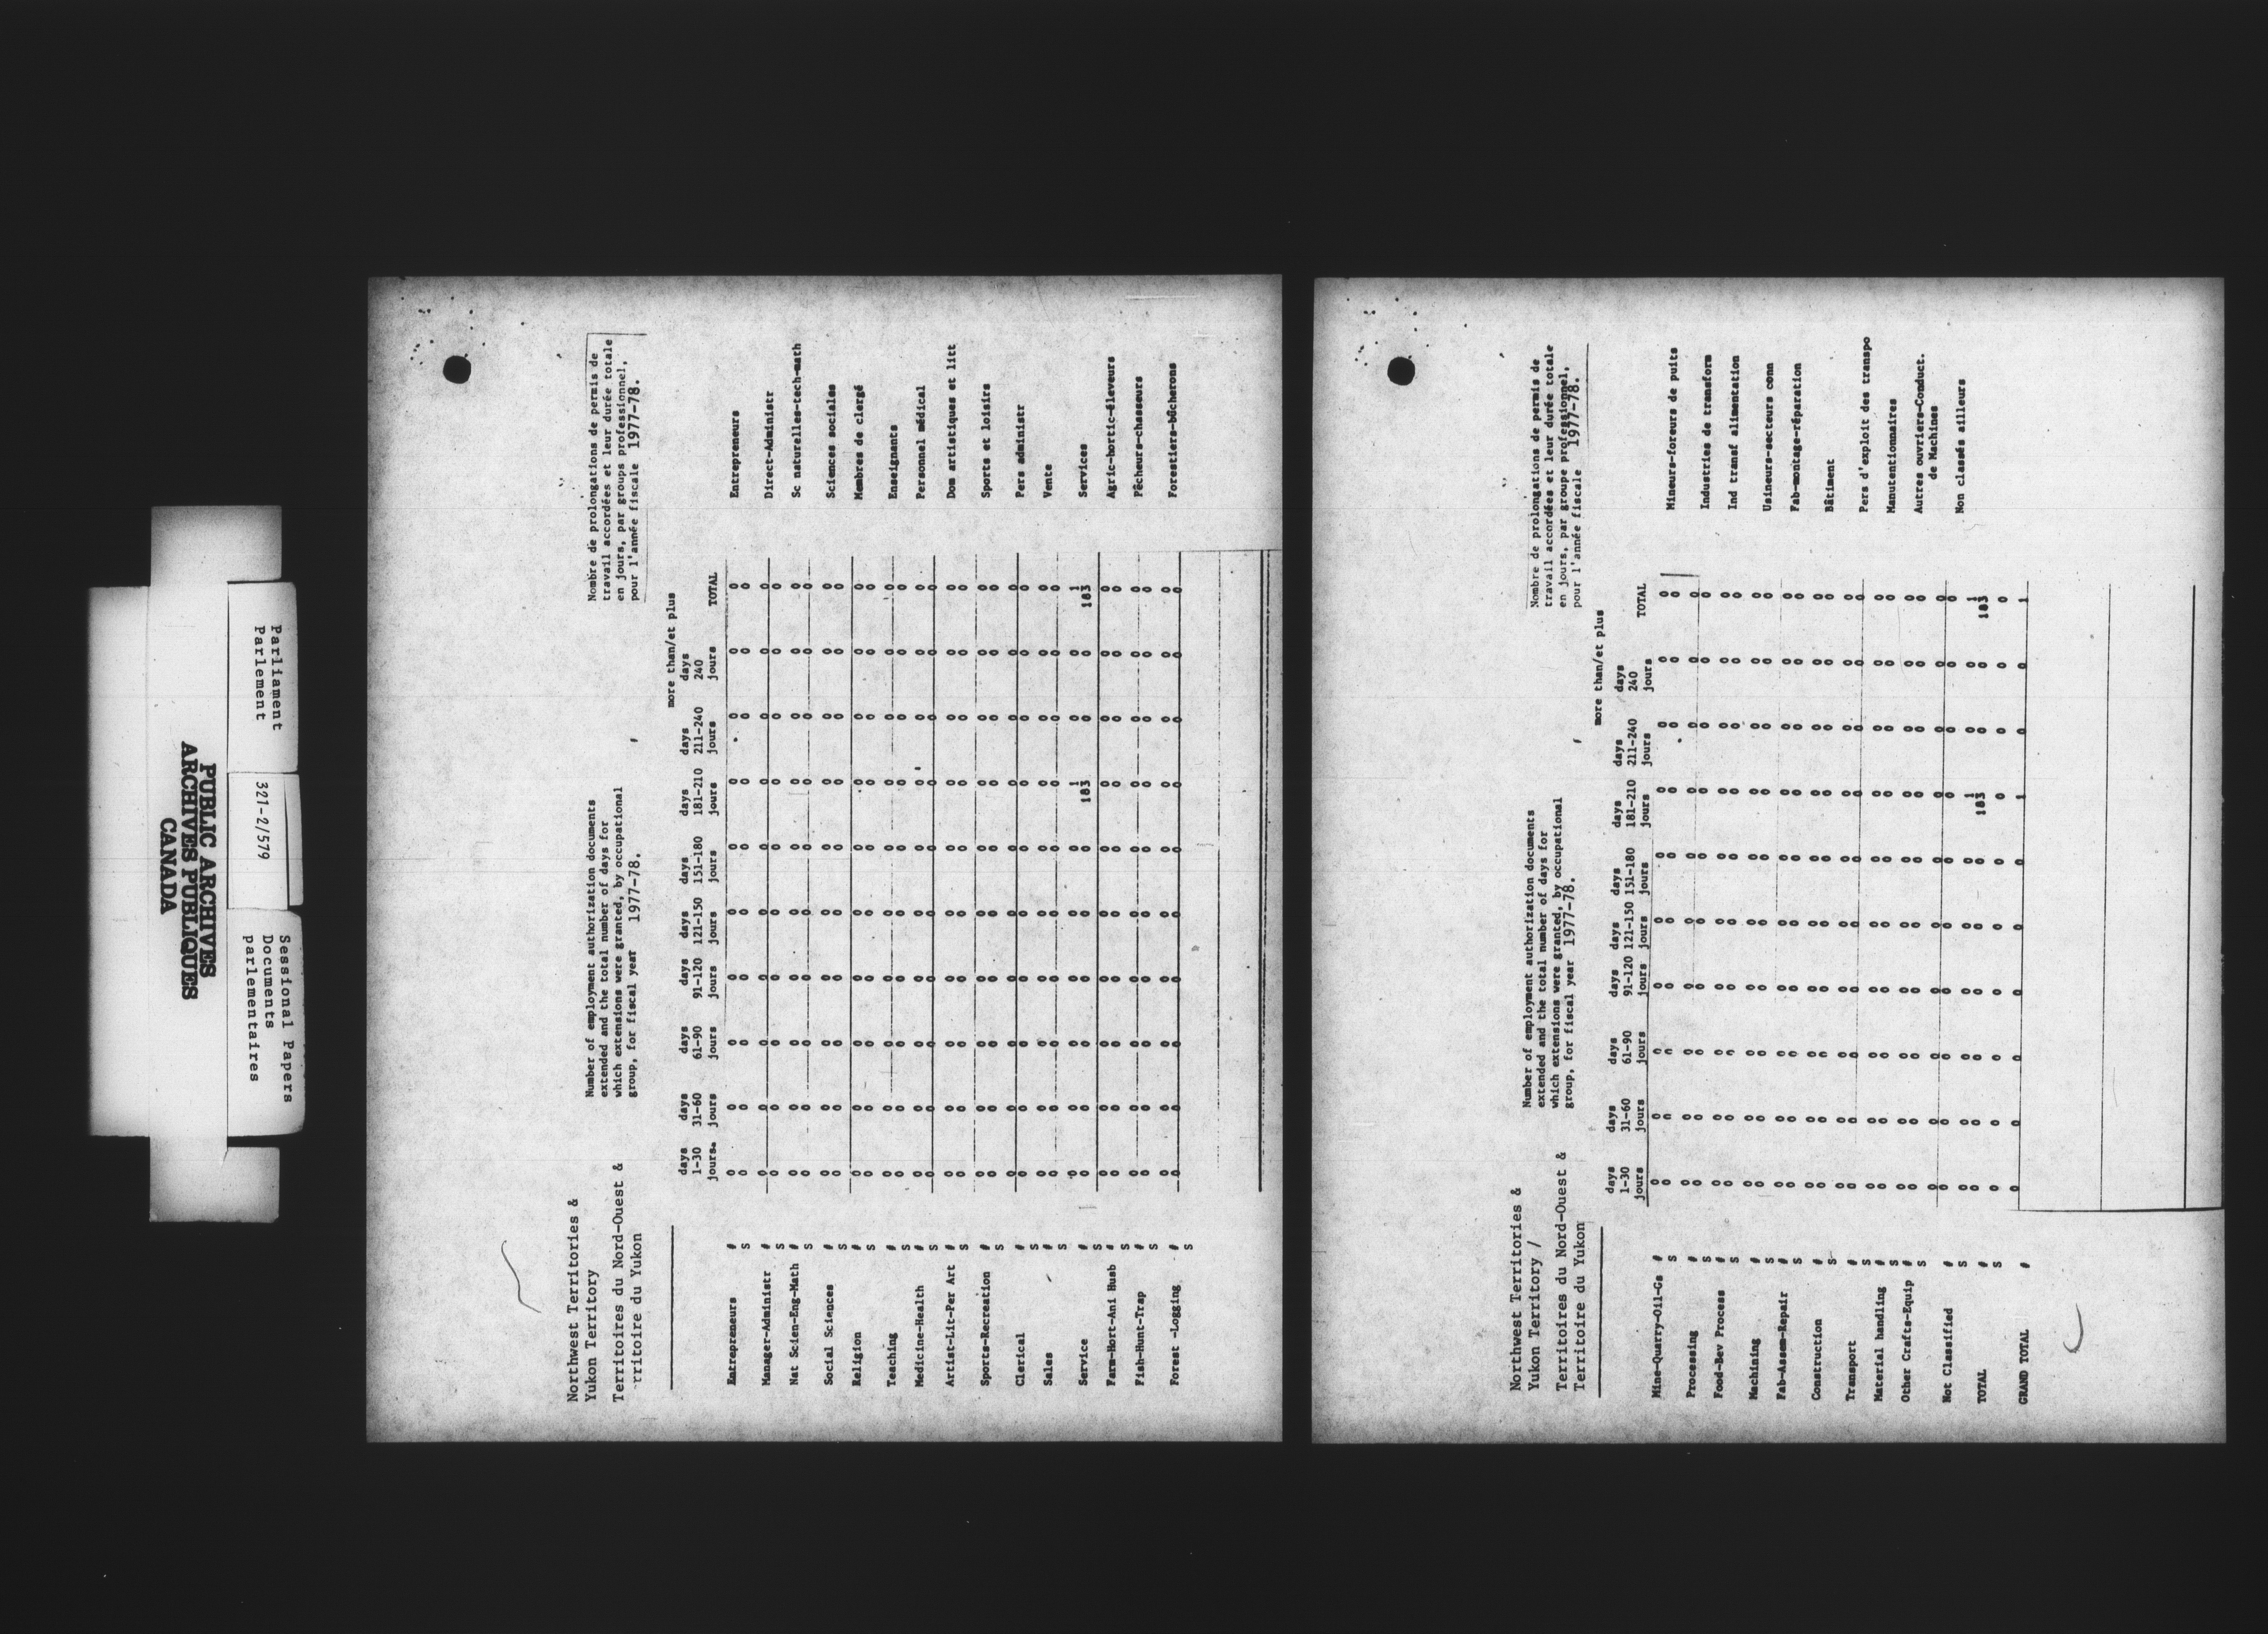 PUBLIC ARCHIVES
ARCHIVES PUBLIQUES
CANADA
Parliament
Parlement
321-2/579
Sessional Papers
Documents
parlementaires
Northwest Territories &
Yukon Territory
Territoires du Nord-Ouest &
rritoire du Yukon
Number of employment authorization documents
extended and the total number of days for
which extensions were granted, by occupational
group, for fiscal year 1977-78.
Nombre de prolongations de permis de
travail accordées et leur durée totale
en jours, par groups professionnel,
pour l'année fiscale 1977-78.
more than/et plus
days days days days days days days days days
1-30 31-60 61-90 91-120 121-150 151-180 181-210 211-240 240
jours. jours jours jours jours jours jours jours jours TOTAL
Entrepreneurs # 0 0 0 0 0 0 0 0 0 0 Entrepreneurs
S 0 0 0 0 0 0 0 0 0 0
Manager-Administr # 0 0 0 0 0 0 0 0 0 0 Direct-Administr
S 0 0 0 0 0 0 0 0 0 0
Nat Scien-Eng-Math # 0 0 0 0 0 0 0 0 0 0 Sc naturelles-tech-math
S 0 0 0 0 0 0 0 0 0 0
Social Sciences # 0 0 0 0 0 0 0 0 0 0 Sciences sociales
S 0 0 0 0 0 0 0 0 0 0
Religion # 0 0 0 0 0 0 0 0 0 0 Membres de clergé
S 0 0 0 0 0 0 0 0 0 0
Teaching # 0 0 0 0 0 0 0 0 0 0 Enseignants
S 0 0 0 0 0 0 0 0 0 0
Medicine-Health # 0 0 0 0 0 0 0 0 0 0 Personnel médical
S 0 0 0 0 0 0 0 0 0 0
Artist-Lit-Per Art # 0 0 0 0 0 0 0 0 0 0 Dom artistiques et litt
S 0 0 0 0 0 0 0 0 0 0
Sports-Recreation # 0 0 0 0 0 0 0 0 0 0 Sports et loisirs
S 0 0 0 0 0 0 0 0 0 0
Clerical # 0 0 0 0 0 0 0 0 0 0 Pers administr
S 0 0 0 0 0 0 0 0 0 0
Sales # 0 0 0 0 0 0 0 0 0 0 Vente
S 0 0 0 0 0 0 0 0 0 0
Service # 0 0 0 0 0 0 1 0 0 1 Services
S 0 0 0 0 0 0 183 0 0 183
Farm-Hort-Ani Husb # 0 0 0 0 0 0 0 0 0 0 Agric-hortic-éleveurs
S 0 0 0 0 0 0 0 0 0 0
Fish-Hunt-Trap # 0 0 0 0 0 0 0 0 0 0 Pêcheurs-chasseurs
S 0 0 0 0 0 0 0 0 0 0
Forest -Logging # 0 0 0 0 0 0 0 0 0 0 Forestiers-bûcherons
S 0 0 0 0 0 0 0 0 0 0
Northwest Territories &
Yukon Territory /
Territoires du Nord-Ouest &
Territoire du Yukon
Number of employment authorization documents
extended and the total number of days for
which extensions were granted, by occupational
group, for fiscal year 1977-78.
Nombre de prolongations de permis de
travail accordées et leur durée totale
en jours, par groupe professionnel,
pour l'année fiscale 1977-78.
more than/et plus
days days days days days days days days days
1-30 31-60 61-90 91-120 121-150 151-180 181-210 211-240 240
jours jours jours jours jours jours jours jours jours TOTAL
Mine-Quarry-Oil-Gs # 0 0 0 0 0 0 0 0 0 0 Mineurs-foreurs de puits
S 0 0 0 0 0 0 0 0 0 0
Processing # 0 0 0 0 0 0 0 0 0 0 Industries de transform
S 0 0 0 0 0 0 0 0 0 0
Food-Bev Process # 0 0 0 0 0 0 0 0 0 0 Ind transf alimentation
S 0 0 0 0 0 0 0 0 0 0
Machining # 0 0 0 0 0 0 0 0 0 0 Usineurs-secteurs conn
S 0 0 0 0 0 0 0 0 0 0
Fab-Assem-Repair # 0 0 0 0 0 0 0 0 0 0 Fab-montage-réparation
S 0 0 0 0 0 0 0 0 0 0
Construction # 0 0 0 0 0 0 0 0 0 0 Bâtiment
S 0 0 0 0 0 0 0 0 0 0
Transport # 0 0 0 0 0 0 0 0 0 0 Pers d'exploit des transpo
S 0 0 0 0 0 0 0 0 0 0
Material handling # 0 0 0 0 0 0 0 0 0 0 Manutentionnaires
S 0 0 0 0 0 0 0 0 0 0
Other Crafts-Equip # 0 0 0 0 0 0 0 0 0 0 Autres ouvriers-Conduct.
S 0 0 0 0 0 0 0 0 0 0 de Machines
Not Classified # 0 0 0 0 0 0 0 0 0 0 Non classés ailleurs
S 0 0 0 0 0 0 0 0 0 0
TOTAL # 0 0 0 0 0 0 1 0 0 1
S 0 0 0 0 0 0 183 0 0 183
0 0 0 0 0 0 0 0 0 0
GRAND TOTAL # 0 0 0 0 0 0 1 0 0 1